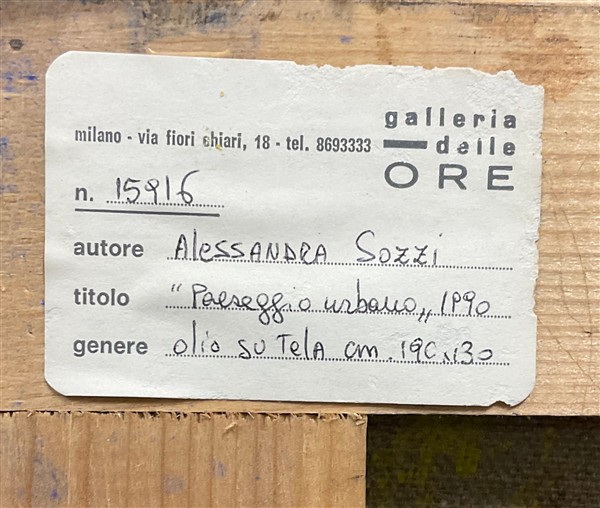 galleria
delle
ORE
milano - via fiori chiari, 18 - tel. 8693333
n. 15916
autore Alessandra Sozzi
titolo "Paeseggio urbano„ 1990
genere olio su tela cm. 190x130